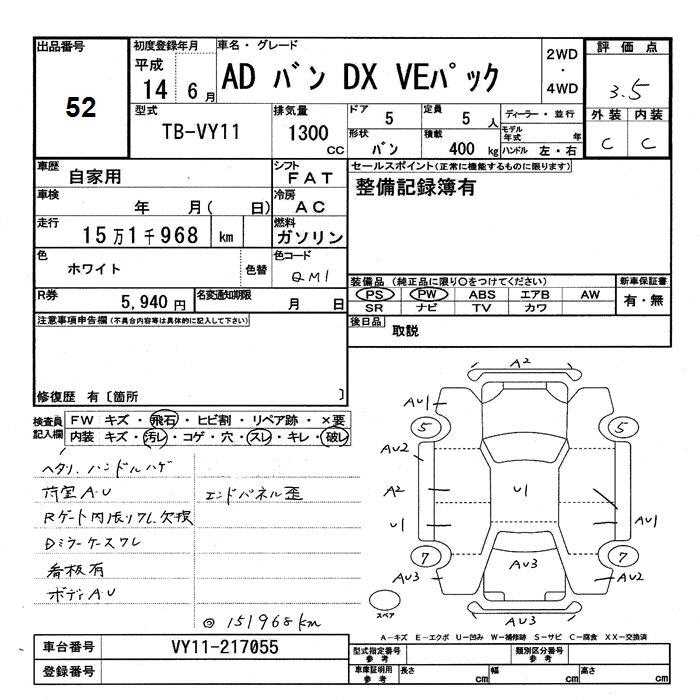 出品番号
52
初度登録年月
平成
14 6月
車名・グレード
AD バン DX VEパック
2WD
・
4WD
評価点
3.5
外装 内装
C C
型式
TB-VY11
排気量
1300 cc
ドア
5
定員
5 人
形状
バン
積載
400 kg
ディーラー・並行
モデル年式 年
ハンドル 左・右
車歴
自家用
シフト
FAT
車検
年 月( 日)
冷房
AC
走行
15万1千968 km
燃料
ガソリン
色
ホワイト
色替
色コード
QM1
R券
5,940 円
名変通知期限
月 日
セールスポイント(正常に機能するものに限ります)
整備記録簿有
装備品 (純正品に限り○をつけてください)
PS PW ABS エアB AW
SR ナビ TV カワ
新車保証書
有・無
後日品
取説
注意事項申告欄(不具合内容等は具体的に記入して下さい)
修復歴 有〔箇所 〕
検査員記入欄
FW キズ・飛石・ヒビ割・リペア跡・×要
内装 キズ・汚レ・コゲ・穴・スレ・キレ・破レ
ヘタリ、ハンドルハゲ
荷室A.U
エンドパネル歪
Rゲート内張りワレ欠損
Dミラーケースワレ
看板有
ボディA.U
◎151968km
A2
AU1
5
5
AU2
A2
U1
U1
AU1
7
7
AU3
AU3
AU2
スペア
AU3
A-キズ E-エクボ U-凹み W-補修跡 S-サビ C-腐食 XX-交換済
車台番号
VY11-217055
登録番号
型式指定番号
参考
類別区分番号
参考
車庫証明用
参考
長さ cm
幅 cm
高さ cm